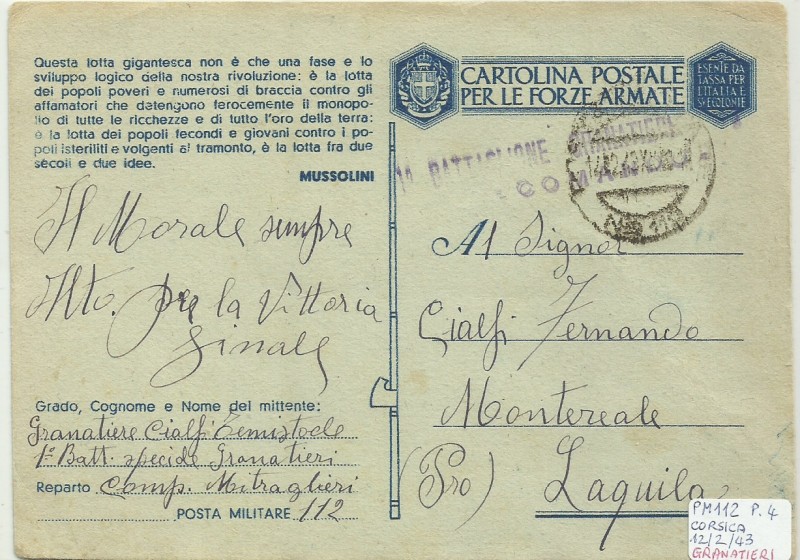 Questa lotta gigantesca non è che una fase e lo
sviluppo logico della nostra rivoluzione: è la lotta
dei popoli poveri e numerosi di braccia contro gli
affamatori che detengono ferocemente il monopo-
lio di tutte le ricchezze e di tutto l'oro della terra:
è la lotta dei popoli fecondi e giovani contro i po-
poli isteriliti e volgenti al tramonto, è la lotta fra due
secoli e due idee.
MUSSOLINI
Il Morale sempre
Alto. per la Vittoria
finale
Grado, Cognome e Nome del mittente:
Granatiere Cialfi Temistocle
1º Batt. speciale Granatieri
Reparto Comp. Mitraglieri
POSTA MILITARE 112
CARTOLINA POSTALE
PER LE FORZE ARMATE
ESENTE DA
TASSA PER
L'ITALIA E
SUE COLONIE
BATTAGLIONE GRANATIERI
Al Signor
Cialfi Fernando
Montereale
(Pro) Laquila
PM112 P.4
CORSICA
12/2/43
GRANATIERI